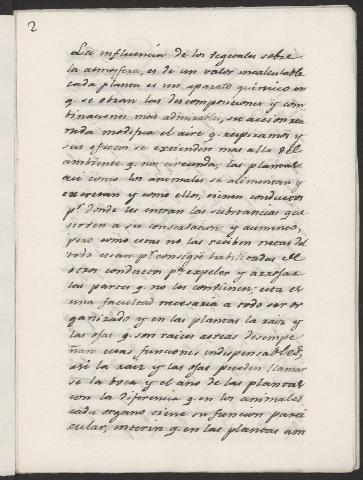 2
La influencia de los vegetales sobre
la atmosfera, es de un valor incalculable
cada planta es un aparato quimico en
q. se obran las descomposiciones y com
binaciones mas admirables, su accion reu
nida modifica el aire q. respiramos y
sus efectos se extienden mas alla del
ambiente q. nos circunda; las plantas
asi como los animales se alimentan y
excretan y como ellos, tienen conductos
pr. donde les entran las substancias que
sirven a su conservacion y aumento,
pero como estas no las reciben netas del
todo estan pr. consigte. habilitadas de
otros conductos pa. expeler y arrojar
las partes q. no les conbienen; esta es
una facultad necesaria a todo ser or
ganizado y en las plantas la raiz y
las ojas q. son raices aereas desempe
ñan estas funciones indispensables,
asi la raiz y las ojas pueden llamar
se la boca y el ano de las plantas
con la diferencia q. en los animales
cada organo tiene su funcion parti
cular, interin q. en las plantas am